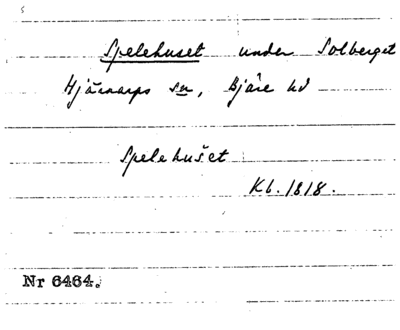 Spelehuset under Solberget
Hjärnarps sn, Bjäre hd
Spelehuset
Kb. 1818.
Nr 6464.